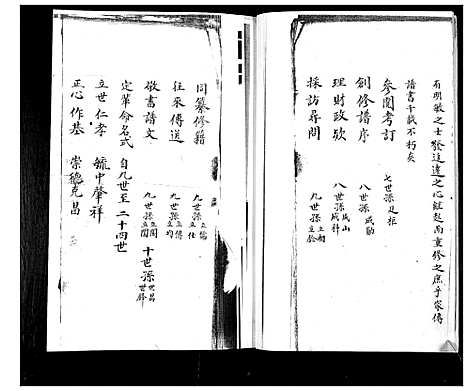 有明敏之士發追遠之心繼起而重修之庶乎家傳
譜書千載不朽矣
參閱考訂 七世孫是柜
創修譜序 八世孫成勳
理財政欵 八世孫成山 成科
採訪尋問 九世孫立朝 立餘
同纂修籍 九世孫立倫 立仕
往來傳送 九世孫立傳 立均
敬書譜文 九世孫立閣 立閣 十世孫世昌 世爵
定輩命名式 自九世至二十四世
立世仁孝 毓中肇祥
正心作基 崇德克昌